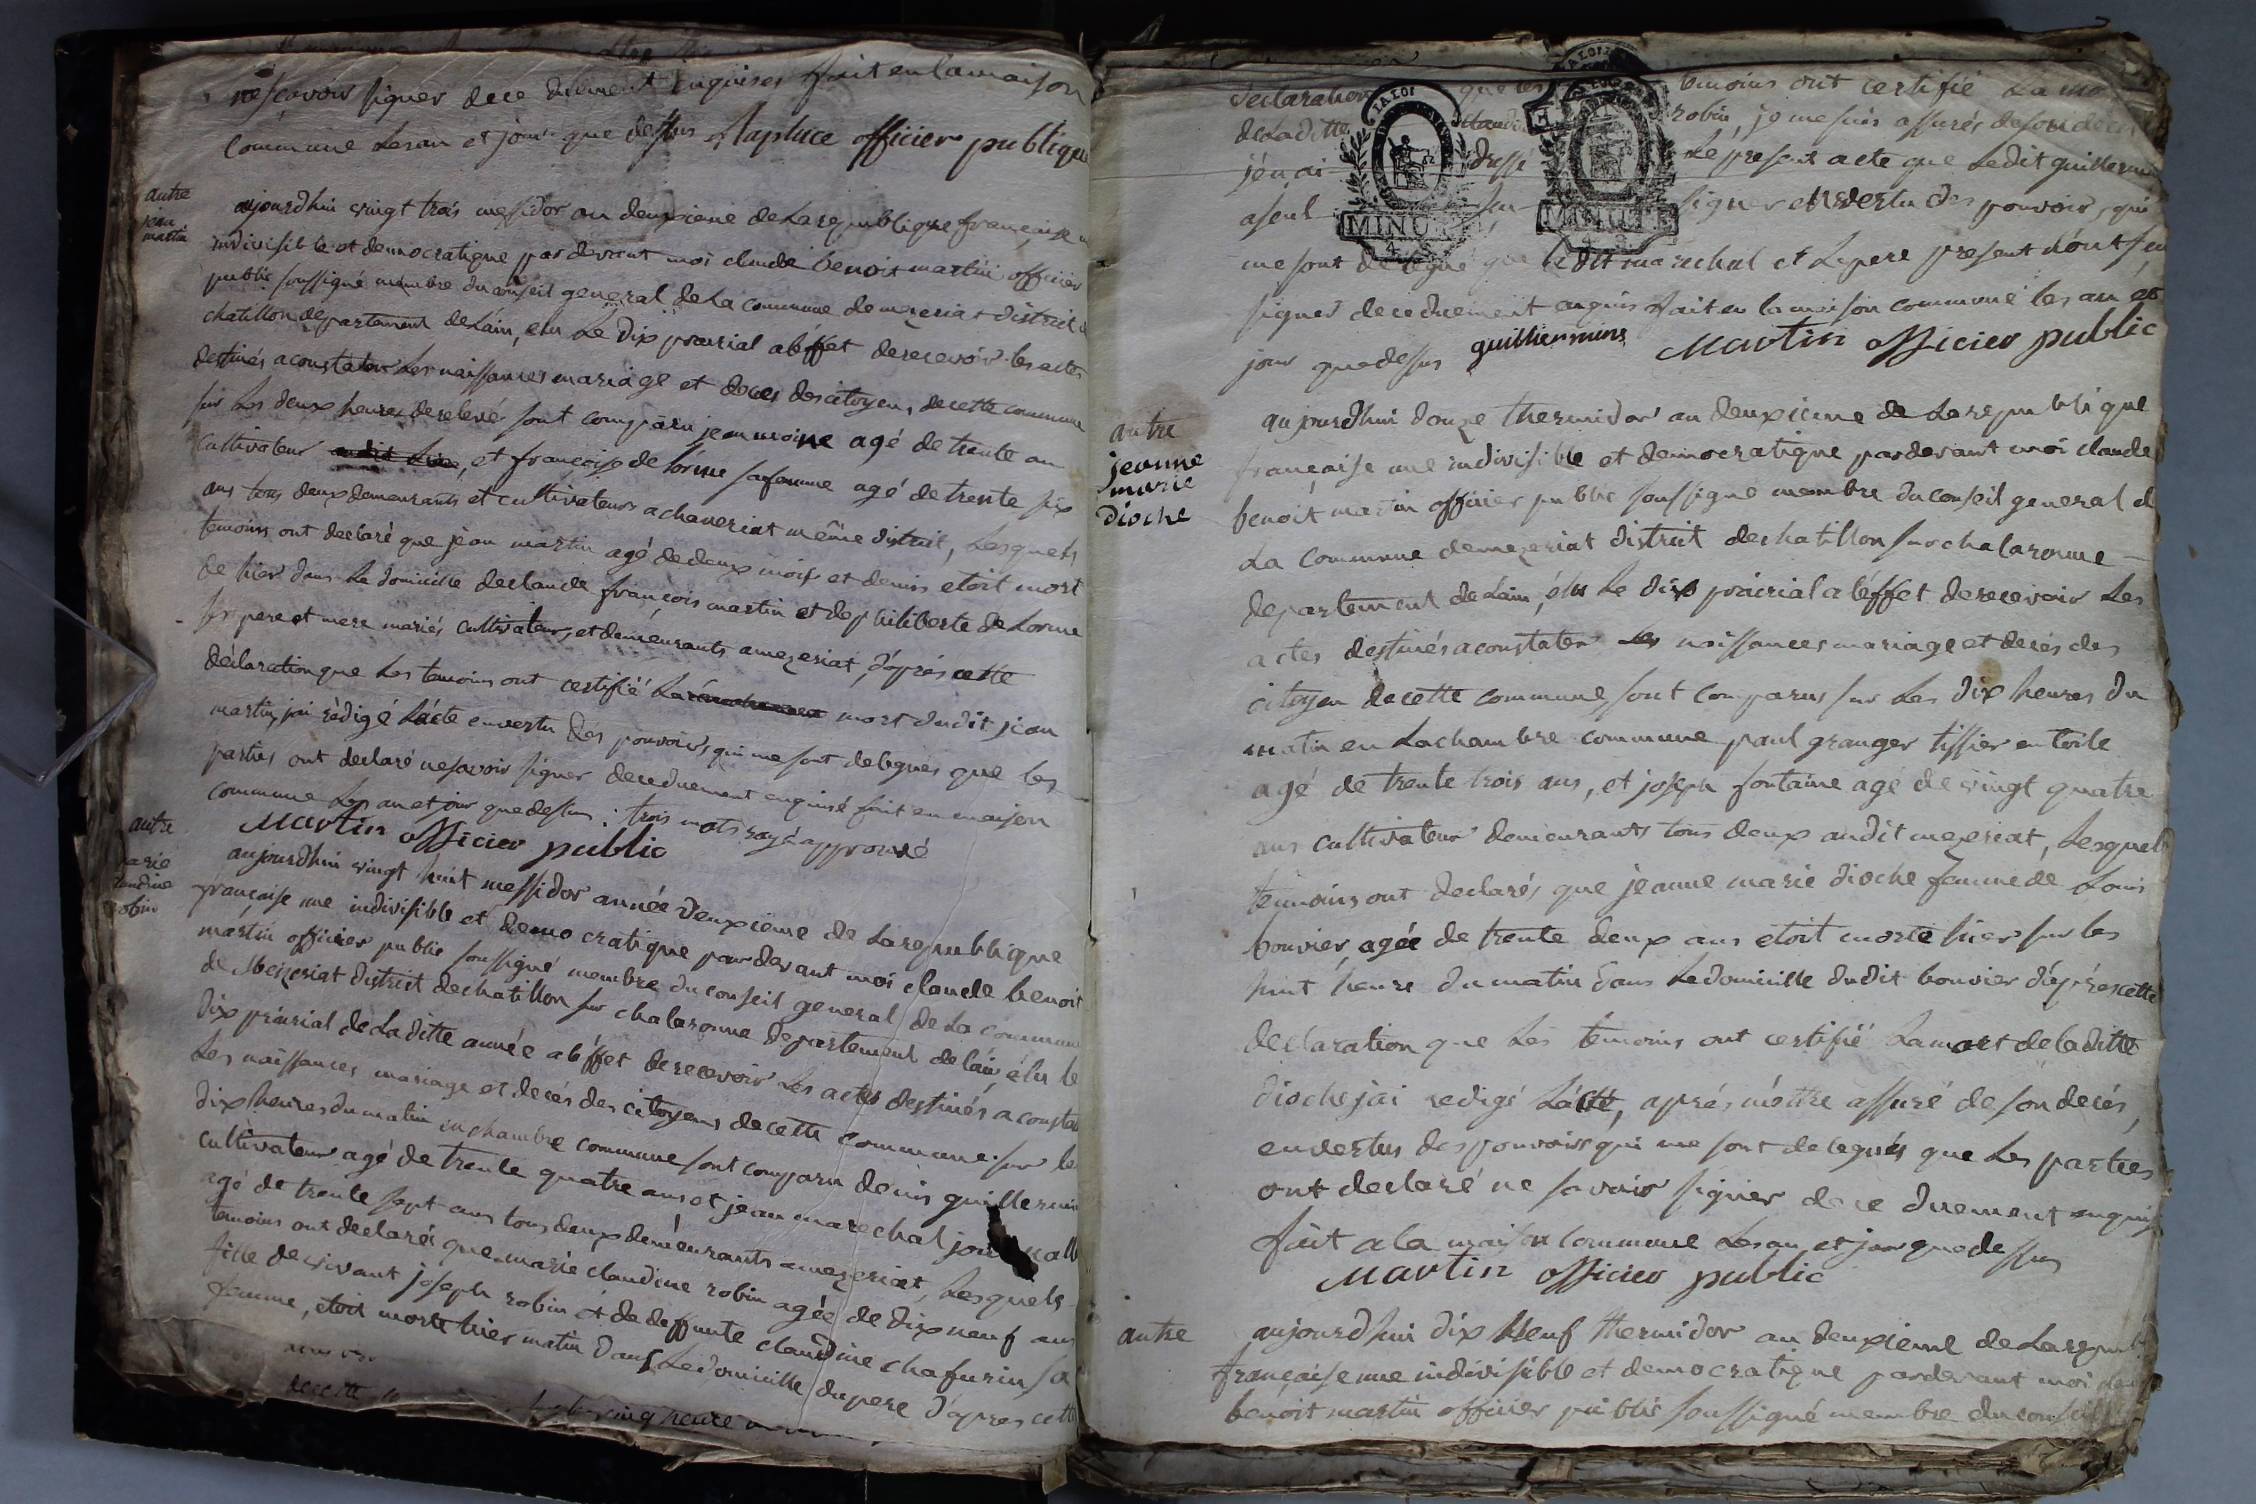 ne scavoir signer de ce dulment enquises fait en la maison
commune les an et jour que dessus officier publique
autre
jean
martin
aujourdhui vingt trois messidor an deuxieme de la republique francaise
indivisible et democratique par devant moi claude benoit martin officier
public soussigné membre du conseil general de la commune de mezeriat district
chatillon departement de láin, elu le dix prairial a léffet de recevoir les actes
destinés a constater les naissances mariage et deces des citoyens de cette commune
sur les deux heures de relevé sont comparu jean moine agé de trente an
cultivateur et francoise de lorme sa femme agé de trente six
ans tous deux demeurants et cultivateurs a chaneriat même district, lesquels
temoins ont declaré que jean martin agé de deux mois et demis etoit mort
de hier dans le domicille de claude francois martin et de philiberte de lorme
ses pere et mere mariés cultivateurs, et demeurants a mezeriat, d'après cette
déclaration que les temoins ont certifié la mort dudit jean
martin, jai rédigé lácte en vertu des pouvoirs qui me sont delegués que les
parties ont declaré ne savoir signer de ce duement enquisé fait en maison
commune les an et jour que dessus : trois mots rayé approuvé
Martin officier public
autre
marie
claudine
robin
aujourdhui vingt huit messidor année deuxiéme de la republique
française une indivisible et democratique par devant moi claude benoit
martin officier public soussigné membre du conseil general de la commune
de Mezeriat district de chatillon sur chalaronne departement de láin, élu le
dix prairial de la ditte année a léffet de recevoir les actes destinés a constater
les naissances mariage et decés des citoyens de cette commune sur les
dix heures du matin en chambre commune sont comparu denis guillermin
cultivateur agé de trente quatre ans et jean marechal
agé de trente sept ans tous deux demeurants a mezeriat, lesquels
temoins ont declarés que marie claudine robin agée de dix neuf ans
fille de vivant joseph robin et de deffunte claudine chafurin sa
femme, étoit morte hier matin dans le domicille du pere d'apres cette
declaration que les temoins ont certifié la mort
de la ditte claudine robin, je me suis assurés de son decés
j'en ai dressé le present acte que ledit guillermin
a seul signer en vertu des pouvoirs qui
me sont delegué que ledit marechal et le pere present nónt su
signer de ce duement enquis fait en la maison commune les an et
jour que dessus guilliermins Martin officier public
MINUTE
MINUTE
autre
jeanne
marie
dioche
aujourdhui douze thermidor an deuxieme de la republique
française une indivisible et democratique par devant moi claude
benoit martin officier public soussigné membre du conseil general de
la commune de mezeriat district de chatillon sur chalaronne
departement de láin, élu le dix prairial a léffet de recevoir les
actes destinés a constater les naissances mariage et decés des
citoyen de cette commune, sont comparus sur les dix heures du
matin en la chambre commune paul granger tissier en toile
agé de trente trois ans, et joseph fontaine agé de vingt quatre
ans cultivateur demeurants tous deux audit mezeriat, lesquel
temoins ont declarés que jeanne marie dioche femme de Louis
bouvier, agée de trente deux ans etoit morte hier sur les
huit heure du matin dans le domicille dudit bouvier d'après cette
declaration que les temoins ont certifié la mort de la ditte
dioche jai redigé lácte, aprés méttre assuré de son decés,
en vertus des pouvoirs qui me sont delegués que les parties
ont declaré ne savoir signer de ce duement enquis
fait a la maison commune les an et jour que dessus
Martin officier public
autre
aujourdhui dix Neuf thermidor an deuxieme de la republ
française une indivisible et democratique par devant moi
benoit martin officier public soussigné membre du conseil